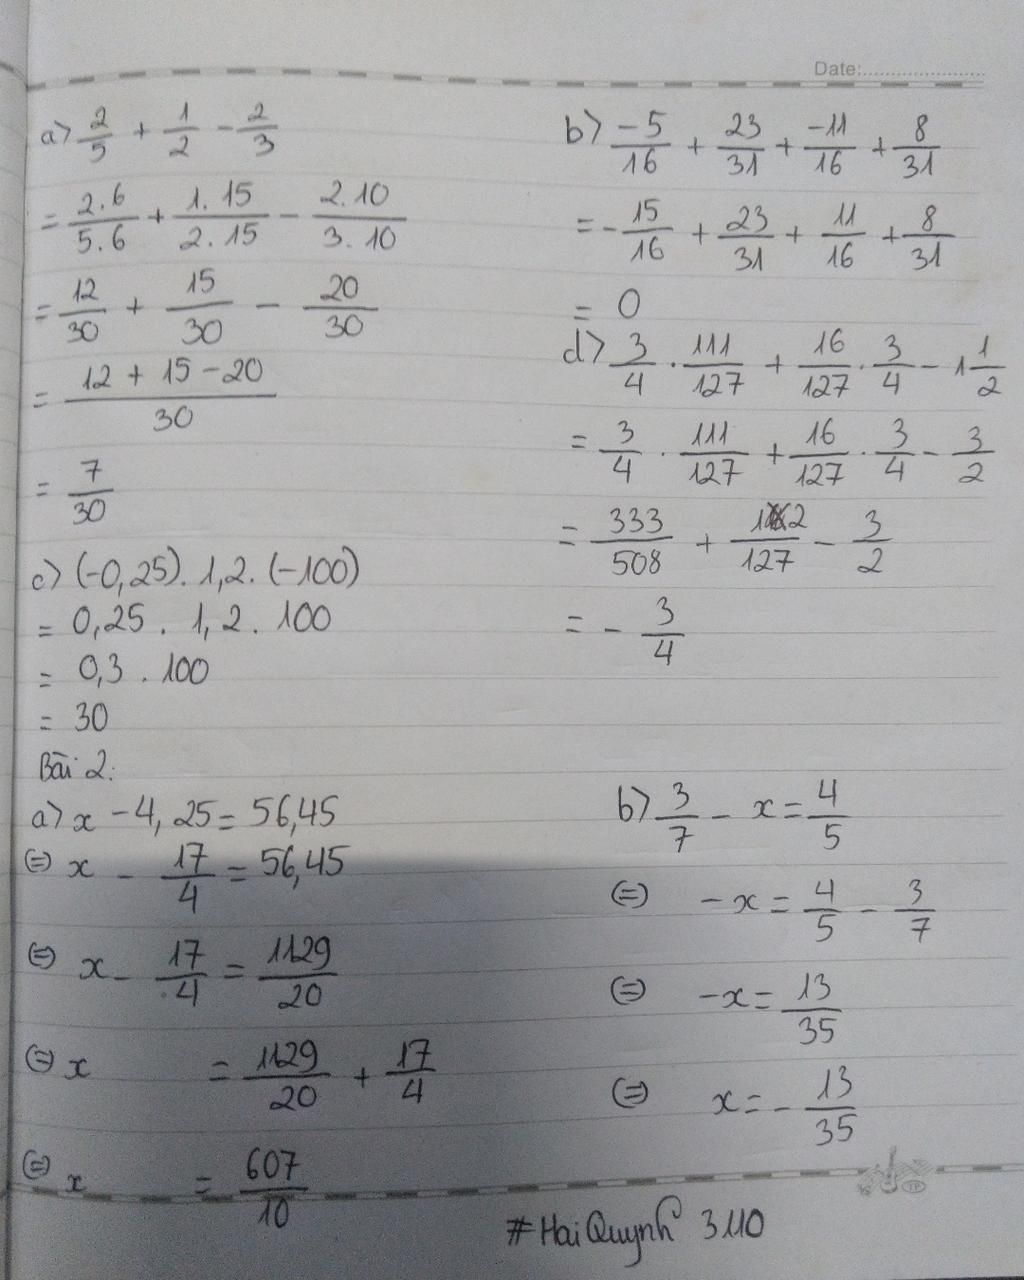 Date:
a) 2/5 + 1/2 - 2/3
= 2.6/5.6 + 1.15/2.15 - 2.10/3.10
= 12/30 + 15/30 - 20/30
= 12 + 15 - 20/30
= 7/30
c) (-0,25). 1,2. (-100)
= 0,25 . 1,2. 100
= 0,3 . 100
= 30
b) -5/16 + 23/31 + -11/16 + 8/31
= - 15/16 + 23/31 + 11/16 + 8/31
= 0
d) 3/4 . 111/127 + 16/127 . 3/4 - 1 1/2
= 3/4 . 111/127 + 16/127 . 3/4 - 3/2
= 333/508 + 12/127 - 3/2
= - 3/4
Bài 2:
a) x - 4,25 = 56,45
⇔ x - 17/4 = 56,45
⇔ x - 17/4 = 1129/20
⇔ x = 1129/20 + 17/4
⇔ x = 607/10
b) 3/7 - x = 4/5
⇔ - x = 4/5 - 3/7
⇔ - x = 13/35
⇔ x = - 13/35
TP
#HaiQuynh 3110